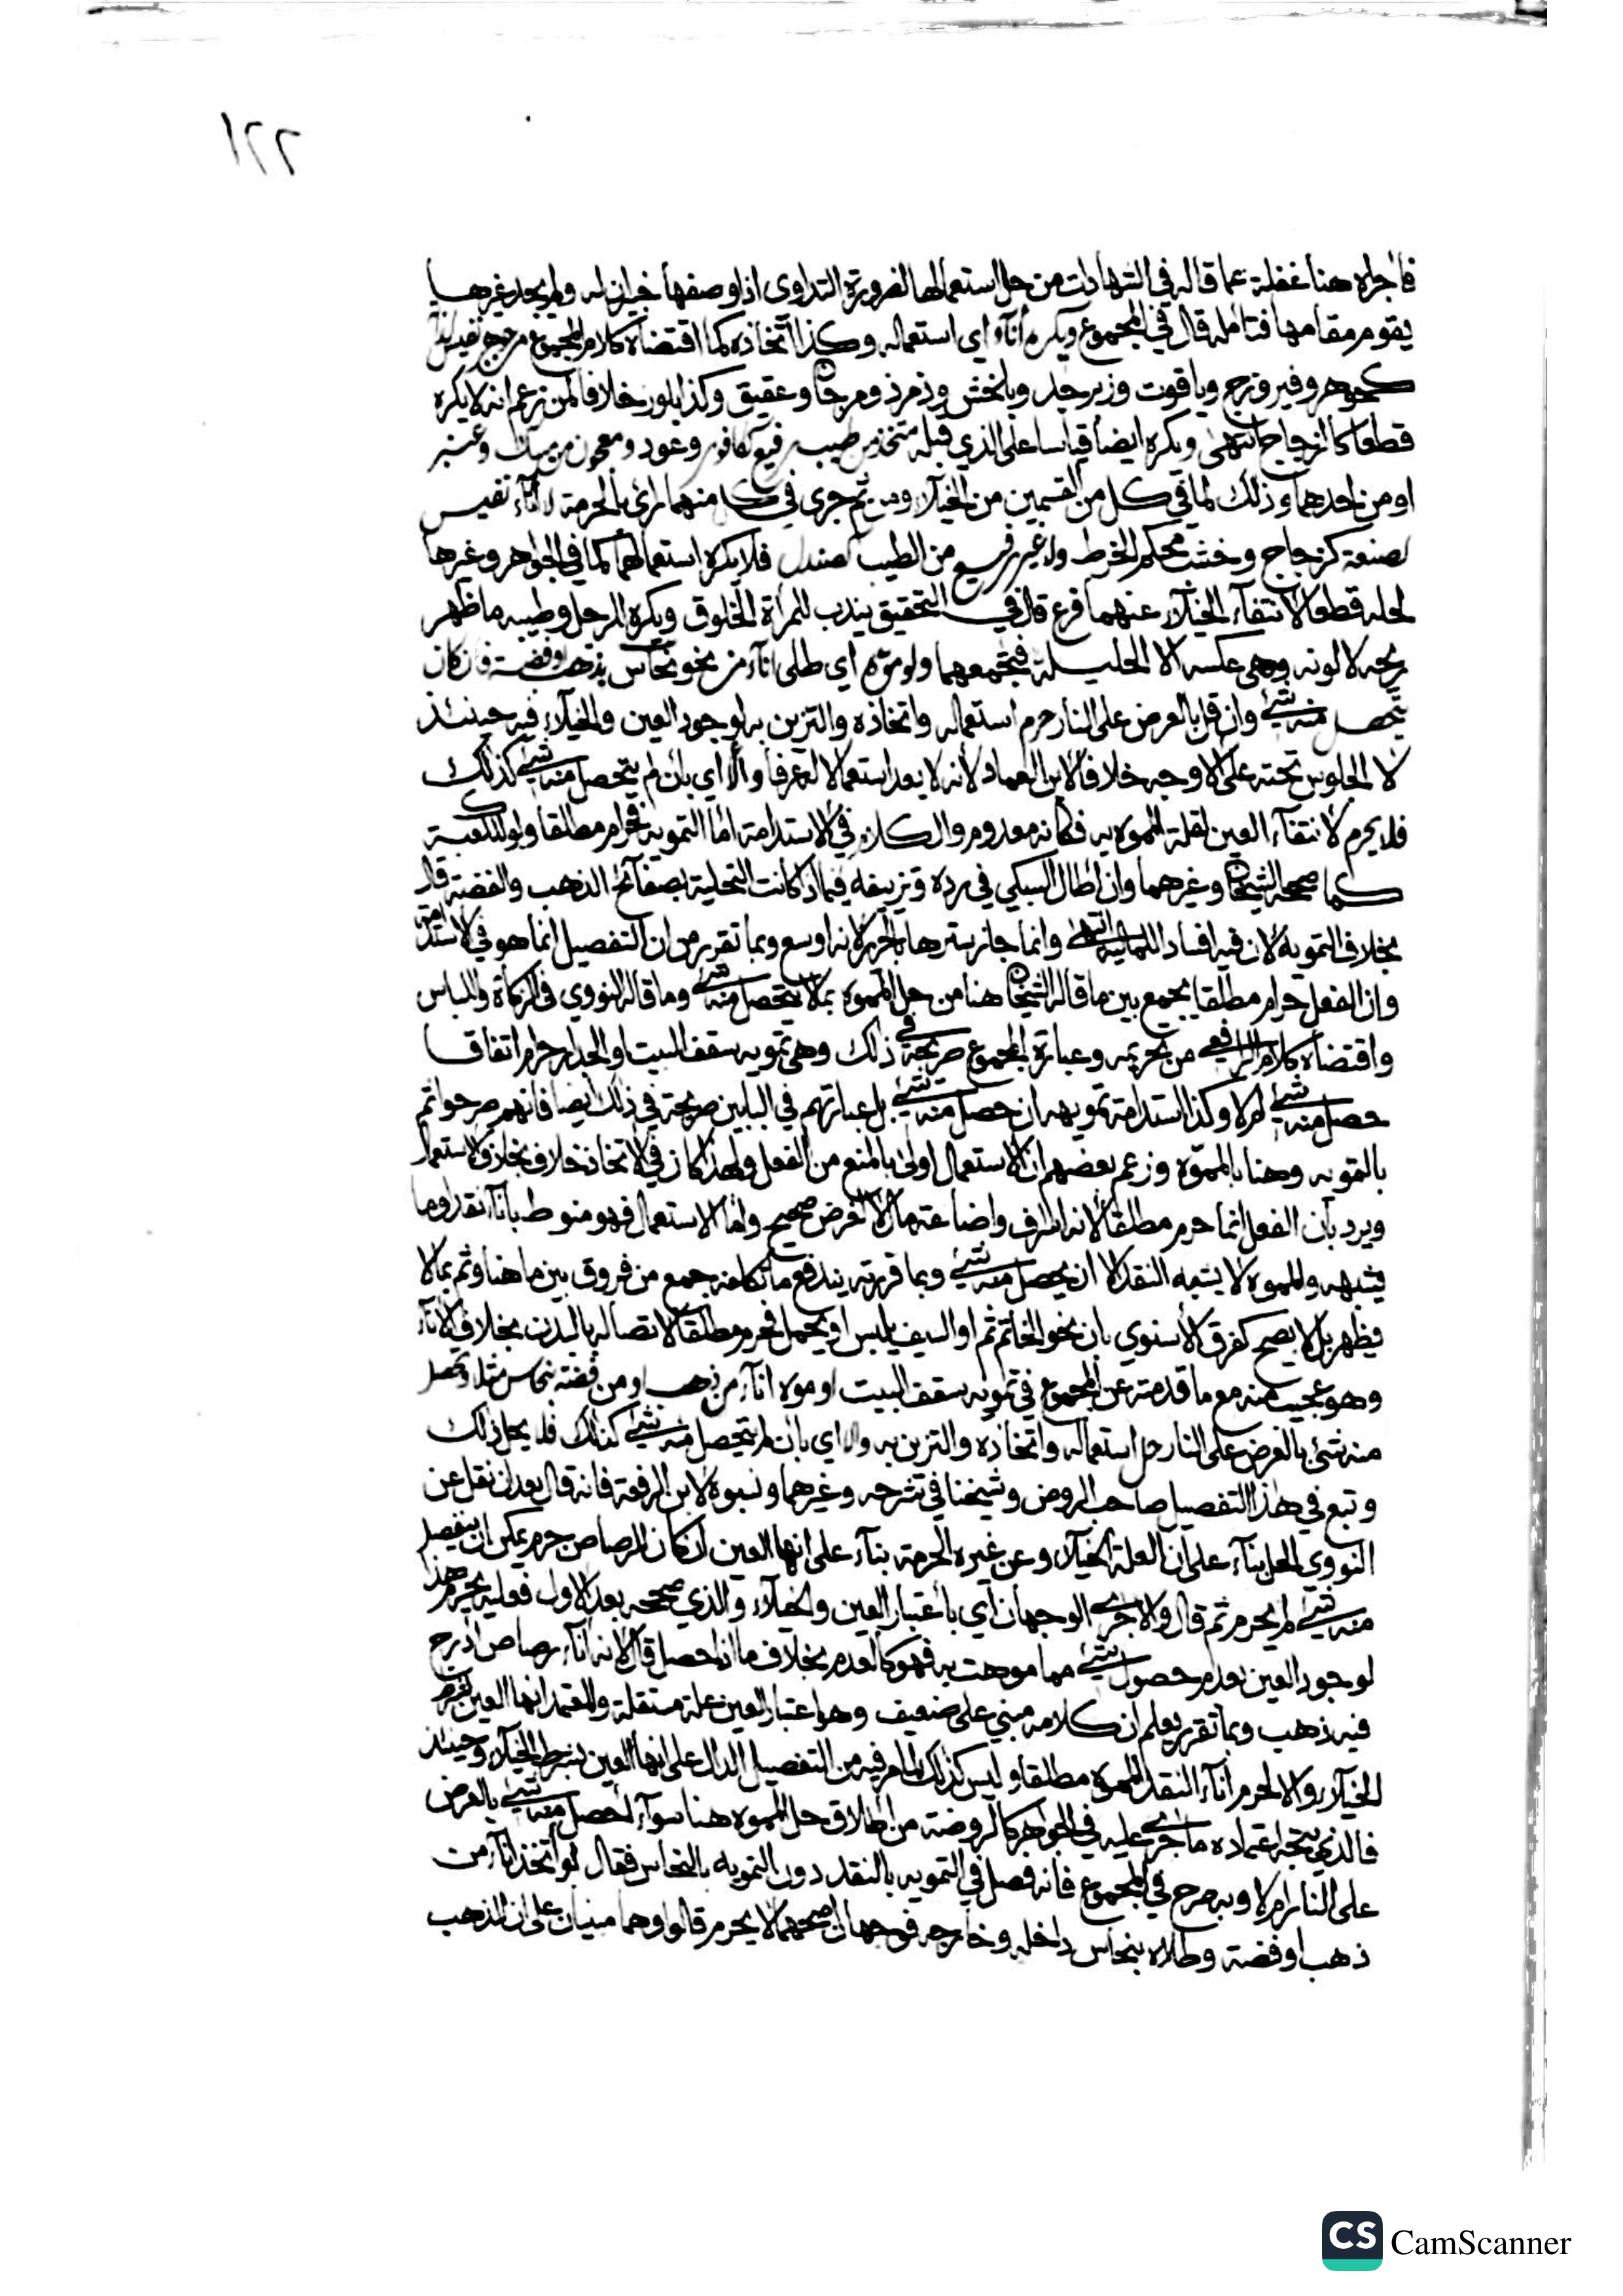 ١٢٢
فأجراه هنا غفلة عما قاله في الشهادات من حل استعمالها لضرورة التداوي اذا وصفها خبيران له ولم يجد غيرها
يقوم مقامها فتأمله قال في المجموع ويكره اناء اي استعماله وكذا اتخاذه كما اقتضاه كلام المجموع من جوهر نفيس
كجوهر وفيروزج وياقوت وزبرجد وبلخش وزمرذ ومرجان وعقيق وكذا بلور خلافا لمن زعم انه لا يكره
قطعا كالزجاج انتهى ويكره ايضا قياسا على الذي قبله متخذ من طيب رفيع ككافور وعود ومعجون من مسك وعنبر
او من احدهما وذلك لما في كل من القسمين من الخيلاء ومن ثم جرى في كل منهما رأي بالحرمة لا اناء نفيس
لصنعة كزجاج وخشب محكم الخرط ولا غير رفيع من الطيب كصندل فلا يكره استعمالهما كما في الجواهر وغيرها
لحله قطعا لانتفاء الخيلاء عنهما فرع قال في التحقيق يندب للمرأة الخلوق ويكره للرجل وطيبه ما ظهر
ريحه لا لونه وهي عكسه الا لحليلة فتجمعهما ولو موه اي طلي اناء من نحو نحاس بذهب او فضة فان كان
يتحصل منه شيء وان قل بالعرض على النار حرم استعماله واتخاذه والتزين به لوجود العين والخيلاء فيه حينئذ
لا الجلوس تحته على الاوجه خلافا لابن العماد لأنه لا يعد استعمالا له عرفا والا اي بان لم يتحصل منه شيء كذلك
فلا يحرم لانتفاء العين لقلة المموه به فكانه معدوم والكلام في الاستدامة اما التمويه فحرام مطلقا ولو للكعبة
كما صححه الشيخان وغيرهما وان اطال السبكي في رده وتزييفه فيما اذا كانت التحلية بصفائح الذهب والفضة قال
بخلاف التمويه لان فيه افساد اللمالية انتهى وانما جاز سترها بالحرير لانه اوسع وبما تقرر من ان التفصيل انما هو في الاستدامة
وان الفعل حرام مطلقا يجمع بين ما قاله الشيخان هنا من حل المموه بما لا يتحصل منه شيء وما قاله النووي في الزكاة واللباس
واقتضاه كلام الرافعي من تحريمه وعبارة المجموع صريحة في ذلك وهي تمويه سقف البيت او الجدار حرام اتفاقا
حصل منه شيء ام لا وكذا استدامة تمويهه ان حصل منه شيء بل عبارتهم في البابين صريحة في ذلك ايضا فانهم صرحوا ثم
بالتمويه وهنا بالمموه وزعم بعضهم ان الاستعمال اولى بالمنع من الفعل ولهذا كان في الاتخاذ خلاف بخلاف الاستعمال
ويرد بأن الفعل انما حرم مطلقا لانه اسراف واضاعة مال لا لغرض صحيح واما الاستعمال فهو منوط باناء نقد او ما
يشبهه والمموه لا يشبه النقد الا ان يحصل منه شيء وبما قررته يندفع ما تكلفه جمع من فروق بين ما هنا وثم بما لا
يظهر بل لا يصح كفرق الأسنوي بان نحو الخاتم ثم او السيف يلبس او يحمل فحرم مطلقا لاتصاله بالبدن بخلاف الاناء
وهو عجيب منه مع ما قدمته عن المجموع في تمويه سقف البيت او موه اناء من ذهب او من فضة بنحاس مثلا وتحصل
منه شيء بالعرض على النار حل استعماله واتخاذه والتزين به والا اي بان لم يتحصل منه شيء كذلك فلا يحل ذلك
وتبع في هذا التفصيل صاحب الروض وشيخنا في شرحه وغيرهما ونسبوه لابن الرفعة فانه قال بعد ان نقل عن
النووي الحل بناء على ان العلة الخيلاء وعن غيره الحرمة بناء على انها العين ان كان للرصاص جرم يمكن ان ينفصل
منه شيء لم يحرم ثم قال والا جرى الوجهان اي باعتبار العين والخيلاء والذي صححه بعد الاول فعليه يحرم هذا
لوجود العين بعدم حصول شيء مما موهت به فهو كالعدم بخلاف ما اذا حصل قال لانه اناء رصاص ادرج
فيه ذهب وبما تقرر يعلم ان كلامه مبني على ضعيف وهو اعتبار العين علة مستقلة والمعتمد انها العين بشرط
الخيلاء والا لحرم اناء النقد المموه مطلقا وليس كذلك لما مر فيه من التفصيل الدال على انها العين بشرط الخيلاء وحينئذ
فالذي يتجه اعتماده ما جرى عليه في الجواهر كالروضة من اطلاق حل المموه هنا سواء أحصل منه شيء بالعرض
على النار ام لا وبه صرح في المجموع فانه فصل في التمويه بالنقد دون التمويه بالنحاس فقال لو اتخذ اناء من
ذهب او فضة وطلاه بنحاس داخله وخارجه فوجهان اصحهما لا يحرم قالوا وهما مبنيان على ان الذهب
CS CamScanner